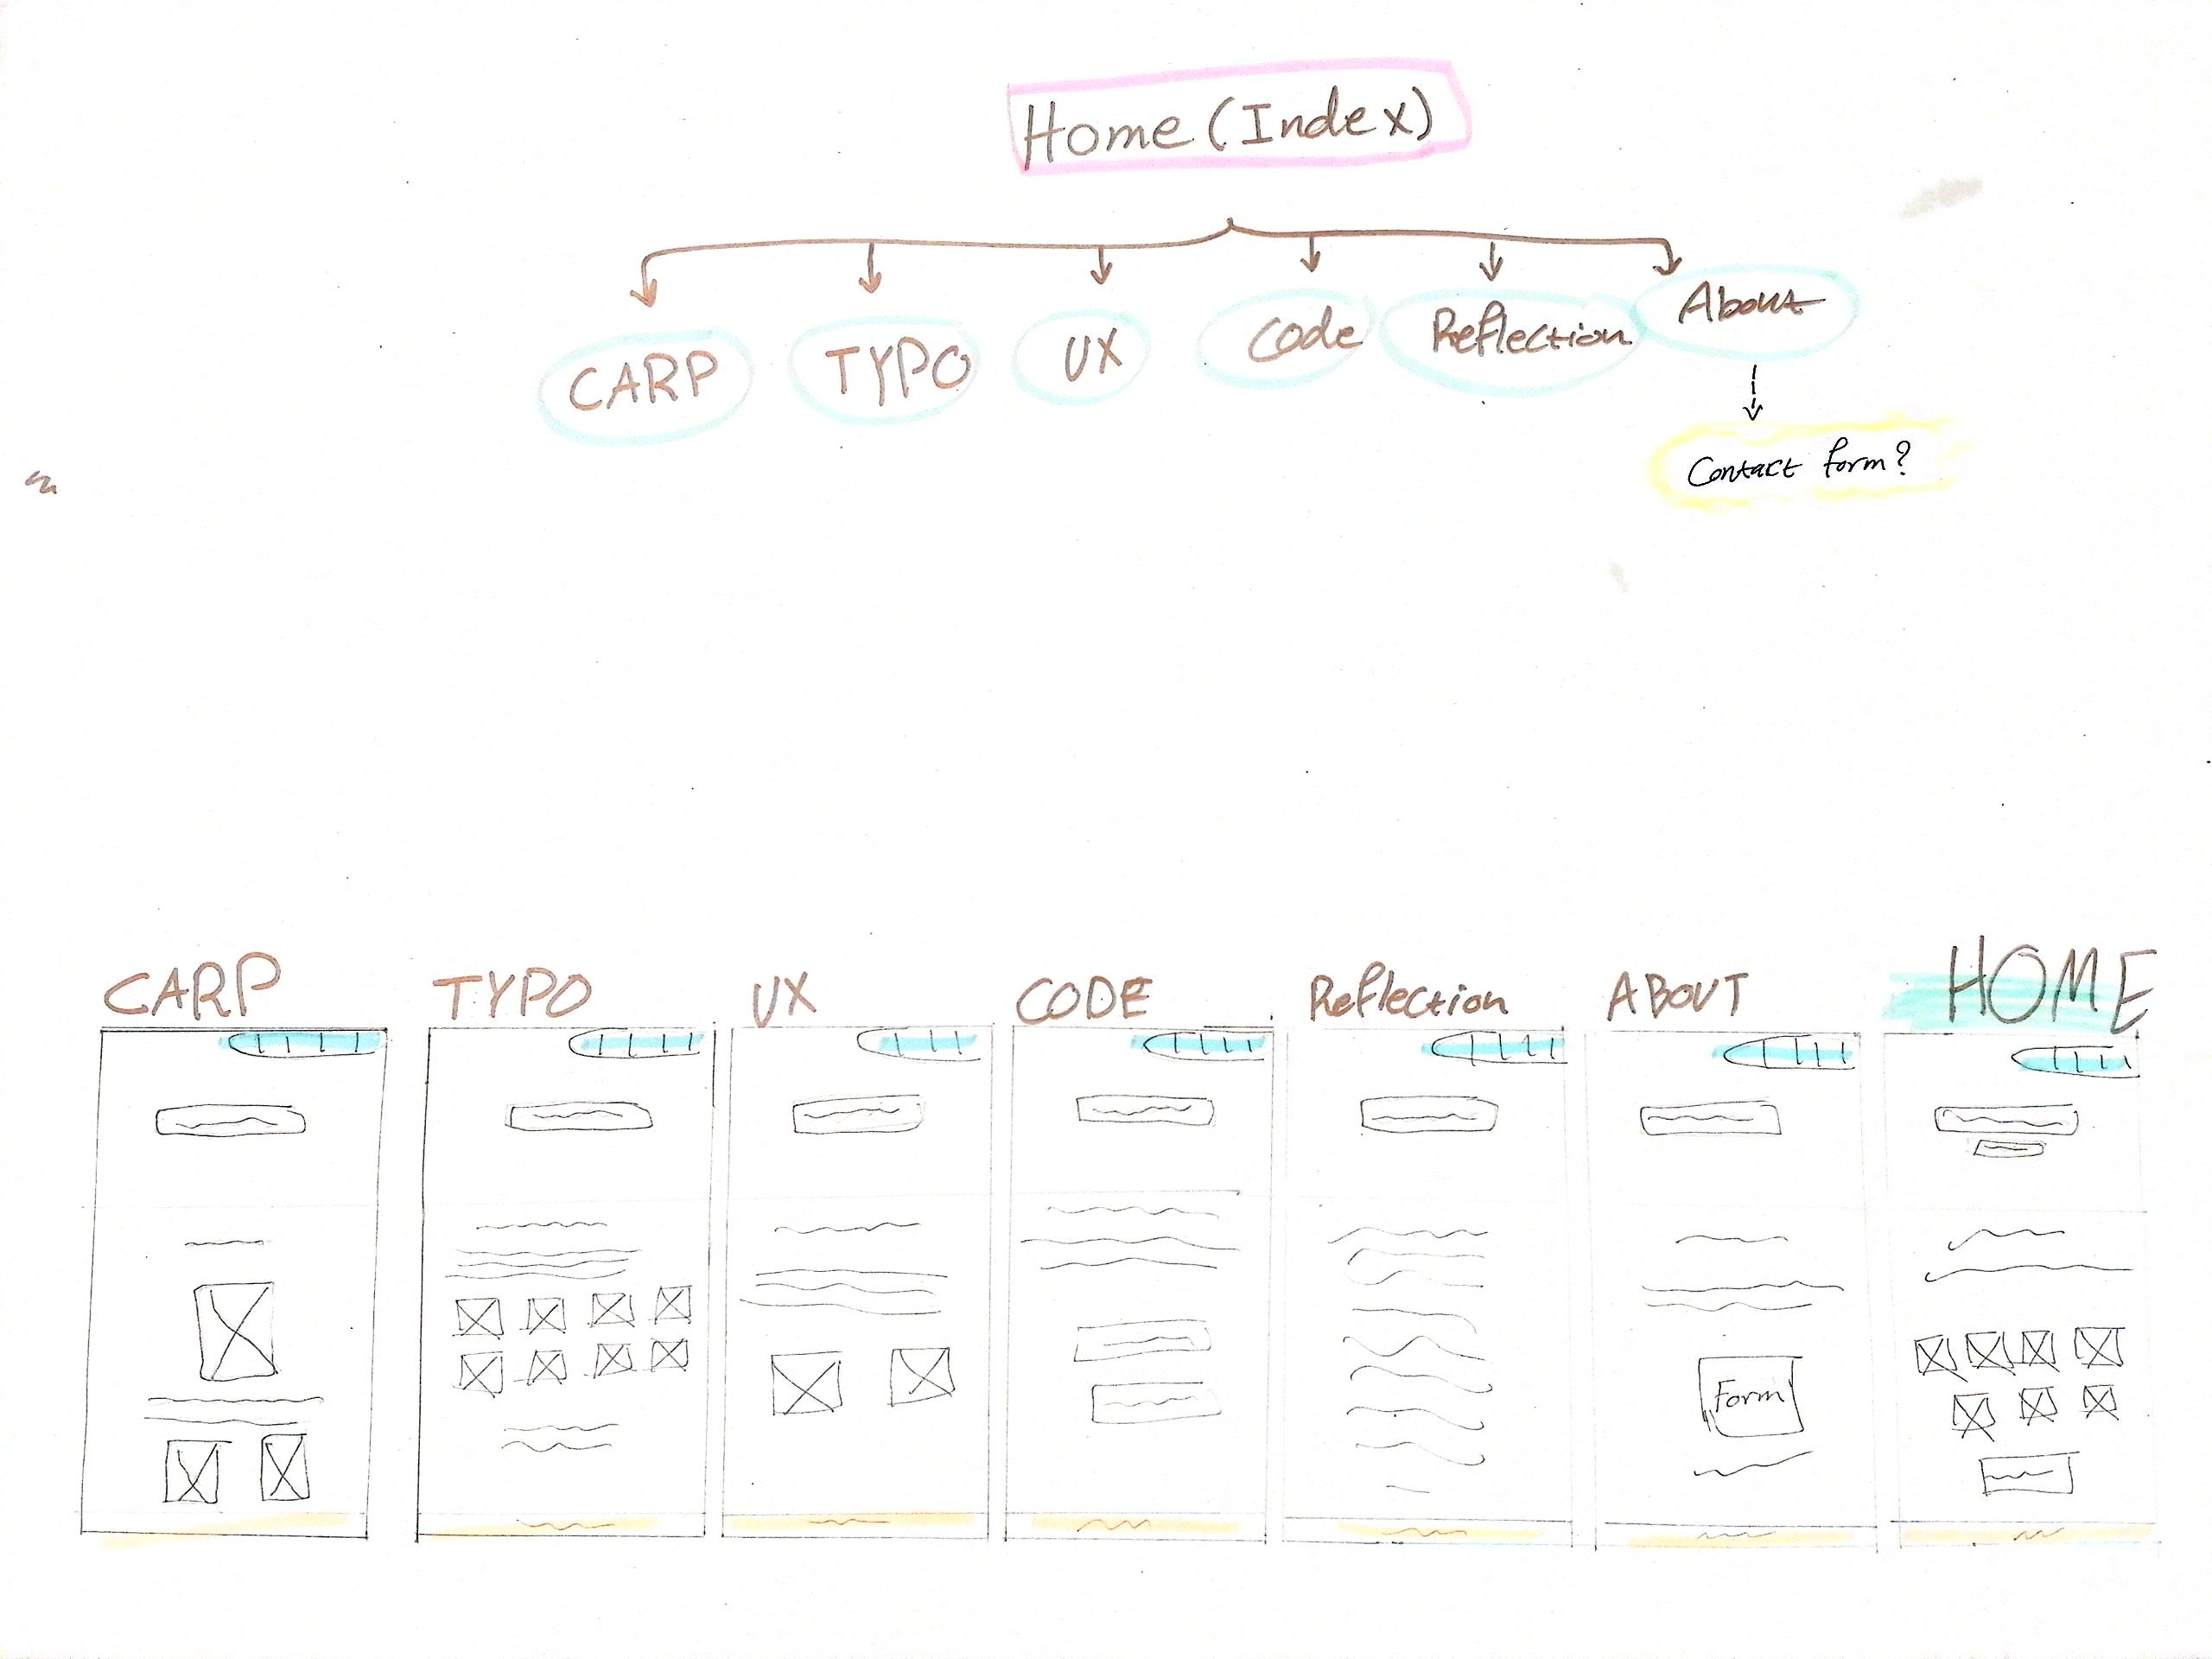 Home (Index)
CARP TYPO UX Code Reflection About
Contact form?
CARP TYPO UX CODE Reflection ABOUT HOME
Form